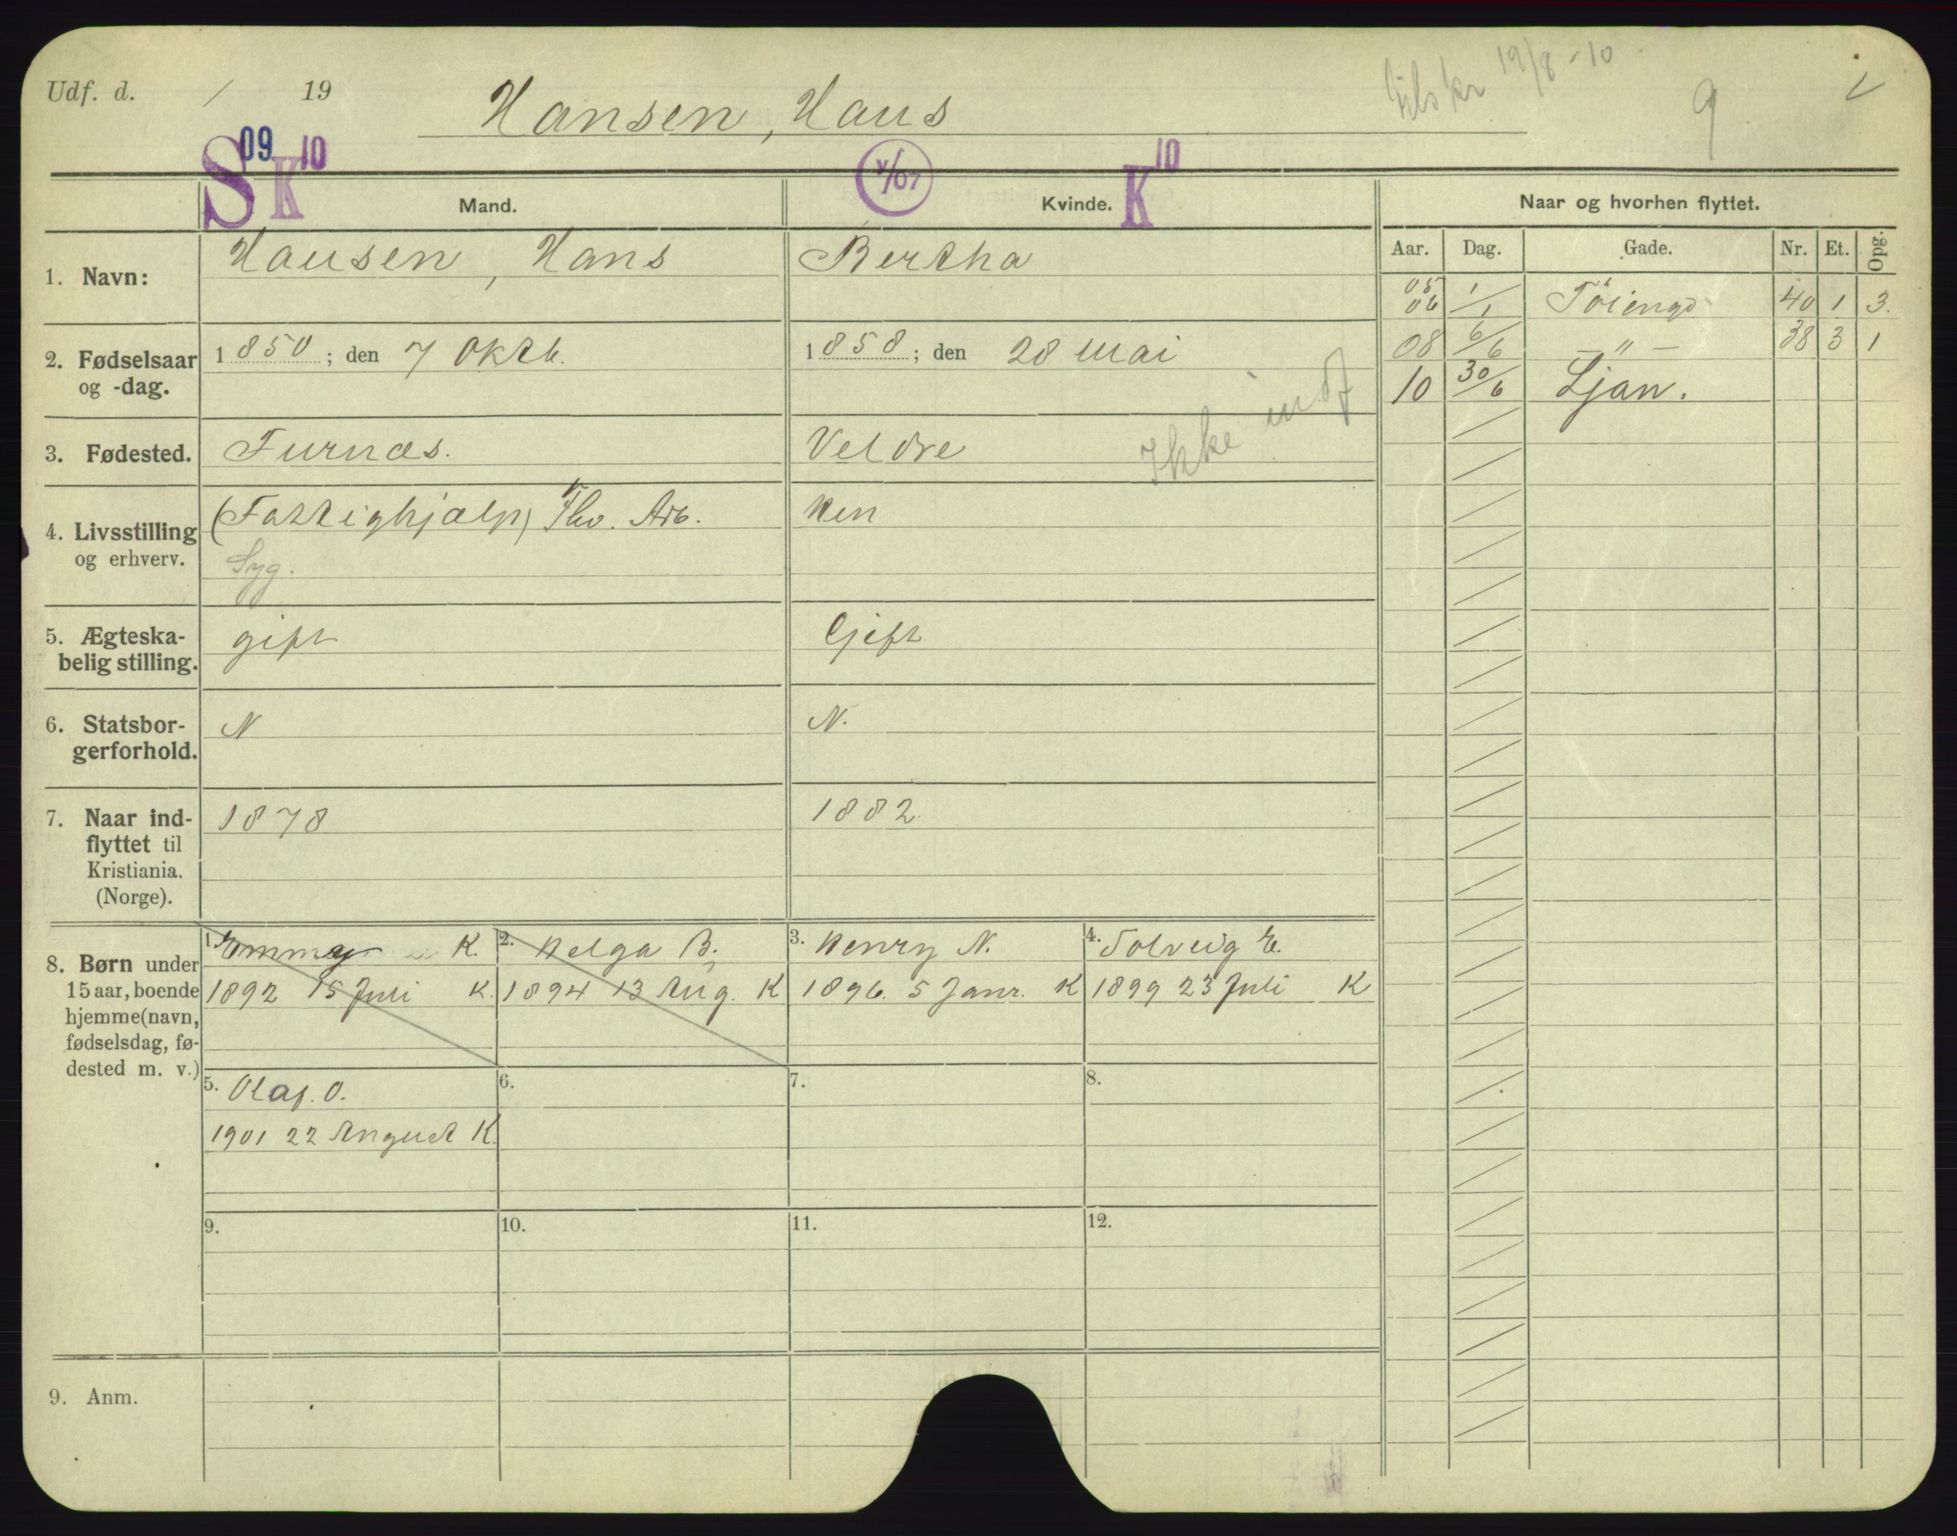 Udf. d. / 19
Hansen, Hans
19/8 - 10
9
S 09 K 10
V/07
K 10
Mand.
Kvinde.
Naar og hvorhen flyttet.
Aar. Dag. Gade. Nr. Et. Opg.
1. Navn: Hansen, Hans
Bertha
05 1/
06 /1 Töiengd 40 1 3.
08 6/6 — " — 38 3 1
10 30/6 Ljan.
2. Fødselsaar 1850; den 7 Oktb. 1858; den 28 Mai
og -dag.
3. Fødested. Furnæs. Veldre
Ikke indf
4. Livsstilling (Fattighjælp) Fhv. Arb.
og erhverv. Syg.
5. Ægteska- gift Gift
belig stilling.
6. Statsbor- N N.
gerforhold.
7. Naar ind- 1878 1882.
flyttet til
Kristiania.
(Norge).
8. Børn under
15 aar, boende
hjemme (navn,
fødselsdag, fø-
dested m. v.)
1. K.
1892 15 Juli K.
2. Helga B.
1894 13 Aug. K
3. Henry N.
1896. 5 Janr. K
4. Solveig E.
1899 23 Juli K
5. Olaf. O.
1901 22 August K.
6.
7.
8.
9.
10.
11.
12.
9. Anm.